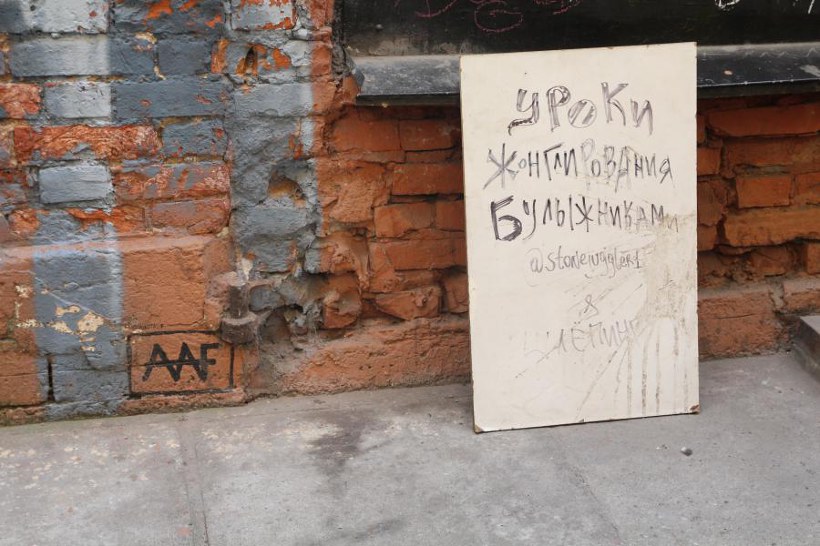 Уроки
жонглирования
булыжниками
@stonejuggler1
&
AAF